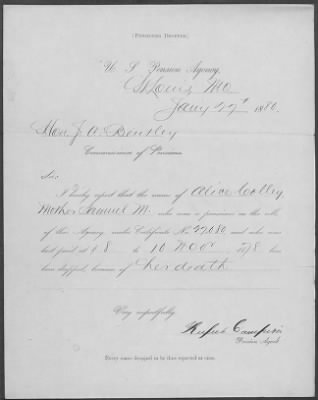 (PENSIONER DROPPED.)
U. S. Pension Agency,
St Louis Mo
Jany 27" 1880.
Hon. J. A. Bentley
Commissioner of Pensions.
Sir:
I hereby report that the name of Alice Colley
Mother Samuel M. who was a pensioner on the rolls
of this Agency, under Certificate No. 27,080 and who was
last paid at $ 8 to 10 Nov, 1878 has
been dropped because of her death
Very respectfully,
Rufus Campion
Pension Agent.
Every name dropped to be thus reported at once.